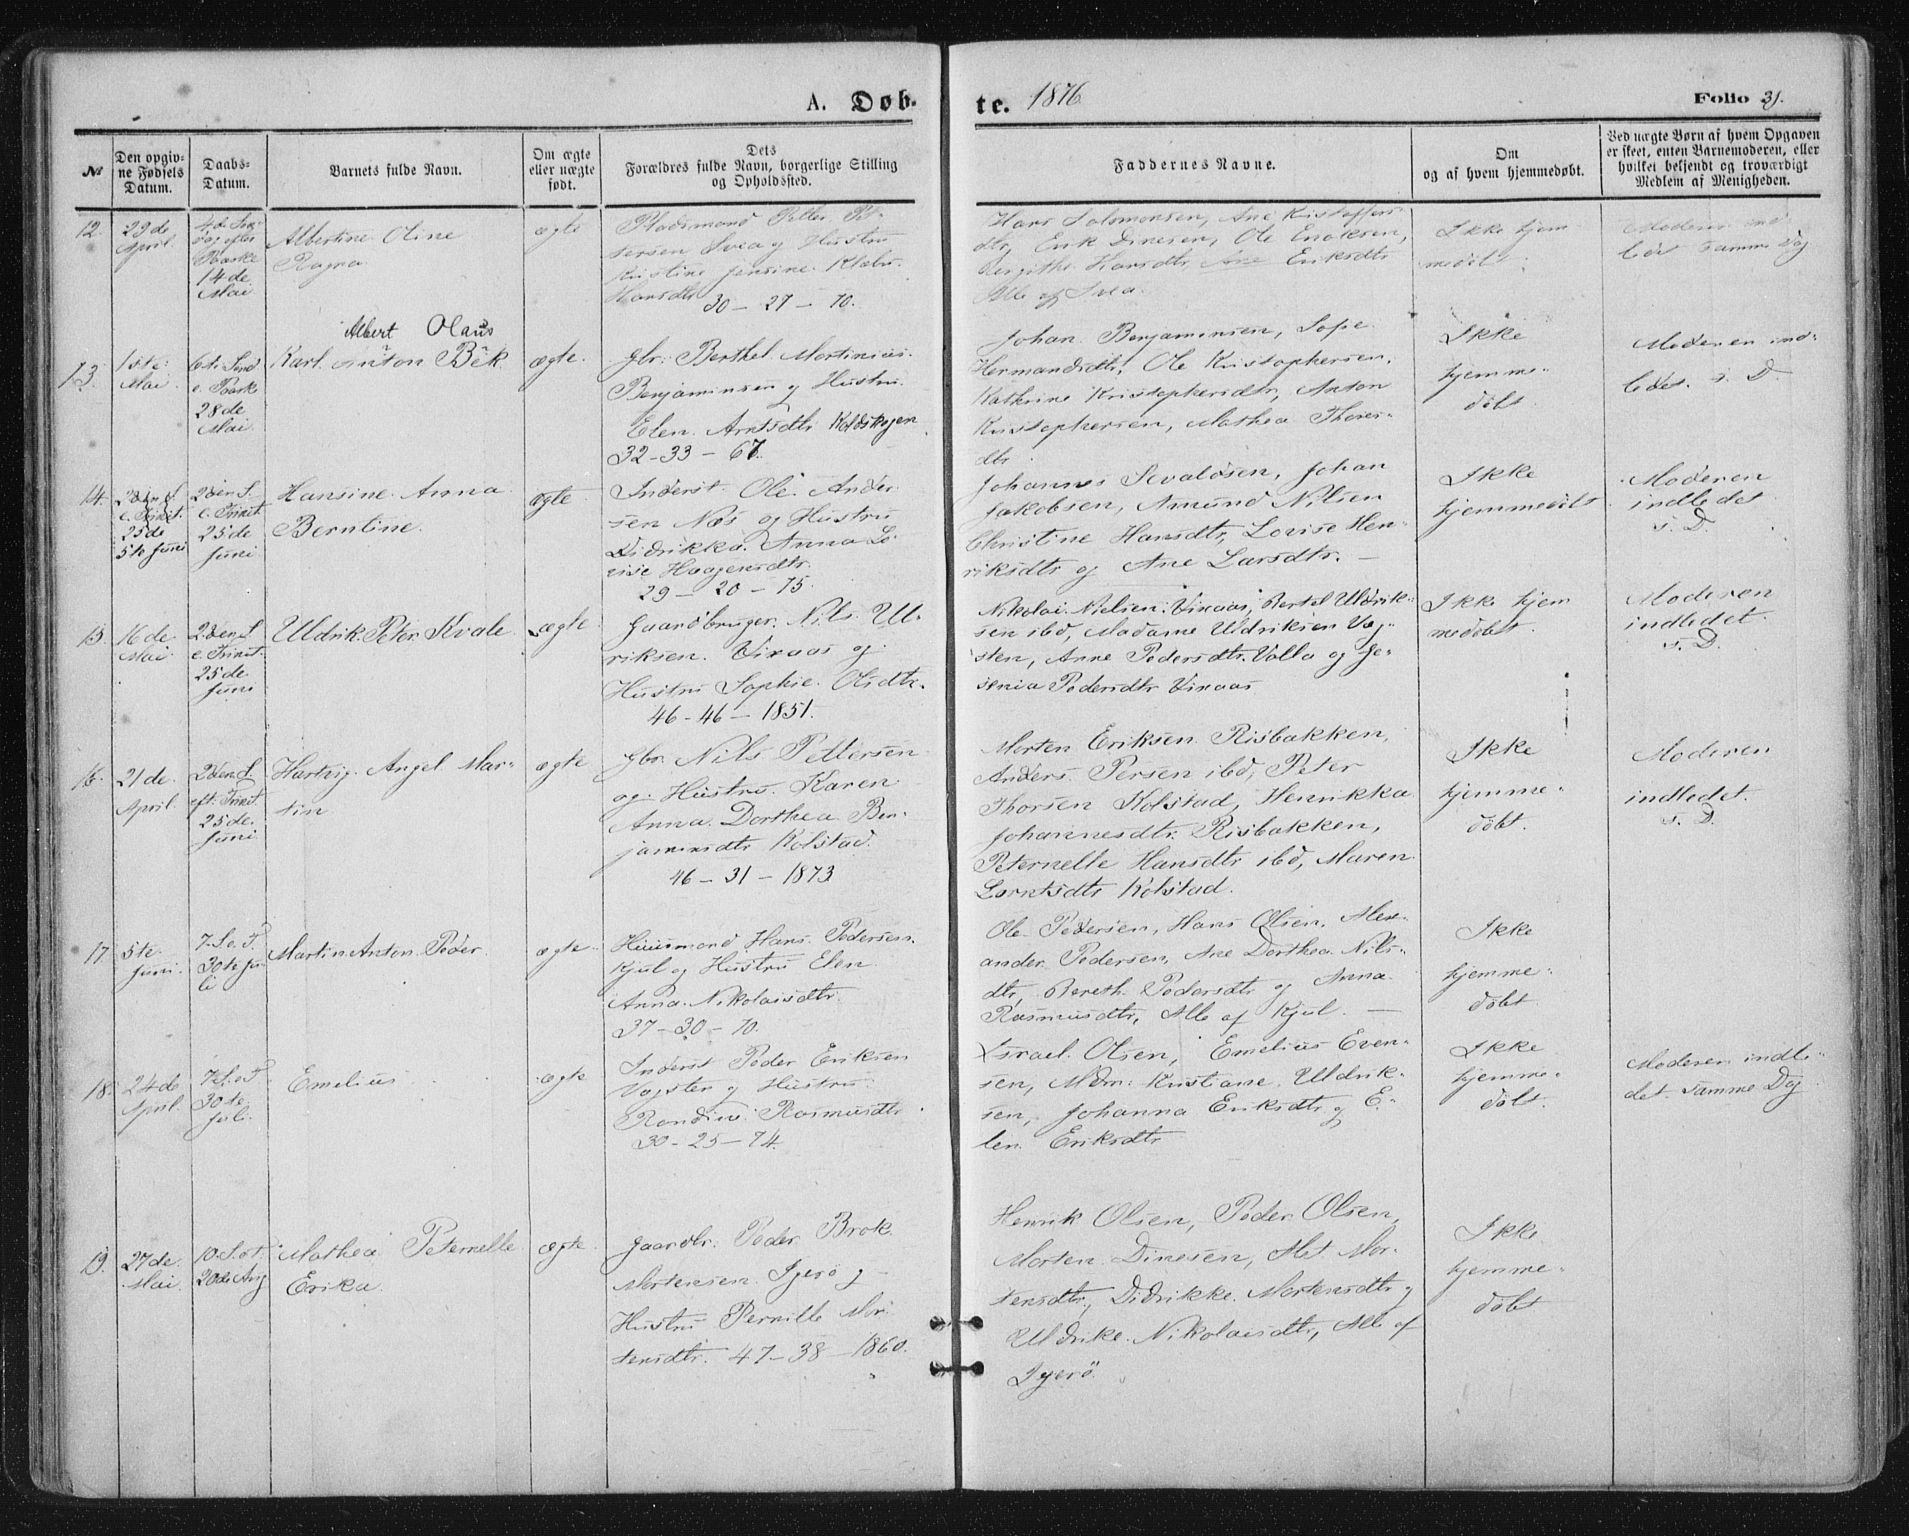 A. Døb-
te. 1876
Folio 31.
№
Den opgiv-
ne Fødsels
Datum.
Daabs-
Datum.
Barnets fulde Navn.
Om ægte
eller uægte
født.
Dets
Forældres fulde Navn, borgerlige Stilling
og Opholdssted.
Faddernes Navne.
Om
og af hvem hjemmedøbt.
Ved uægte Børn af hvem Opgaven
er skeet, enten Barnemoderen, eller
hvilket betjendt og troværdigt
Medlem af Menigheden.
12.
29de
April.
4de
14de
Mai
Albertine Oline
Ragna
ægte
Petter Pe-
tersen Svea og Hustru
Kristine Jensine
Hansdtr
30 - 27 - 70.
Hans Salomonsen, Ane Kristoffers-
dtr, Erik Dinesen, Ole Enoksen,
Hansdtr Ane Eriksdtr
Alle af Svea.
Ikke hjem
medøbt.
Moderen ind
ledt samme Dag
13.
1ste
Mai
6te Sønd
e. Paask
28de
Mai
Albert Olaus
Karl Anton Bek
ægte.
Gbr. Berthel Mortinius
Benjaminsen og Hustru
Elen Arntsdtr Koldskogen
32 - 33 - 67.
Johan Benjaminsen, Sofie
Hermansdtr, Ole Kristophersen,
Kathrine Kristophersdtr, Anton
Kristophersen, Mathea Thores-
dtr.
Ikke
hjemme-
døbt.
Moderen ind-
ledet. s. D
14.
25de
5te Juni
2den S.
e. Trinit.
25de
Juni
Hansine Anna
Berntine.
ægte.
Inderst Ole Ander
sen Næs og Hustru
Didrikka Anna Lo-
vise Haagensdtr.
29 - 20 - 75.
Johannes Sevaldsen, Johan
Jakobsen, Amund Nilsen
Christine Hansdtr, Lovise Hen-
riksdtr og Ane Larsdtr. —
Ikke
hjemmedøbt
Moderen
indledet
s. D.
15.
16de
Mai
2den S
e. Trinit.
25de
Juni
Uldrik Peter Kvale
ægte.
Gaardbruger Nils Ul-
riksen Vinaas og
Hustru Sophie Olsdtr.
46 - 46 - 1851.
Nikolai Nielsen Vinaas, Bertel Uldrik-
sen ibd, Madame Uldriksen Væg-
sten, Anne Pedersdtr. Valla og Je-
senia Pedersdtr Vinaas
Ikke hjem
medøbt.
Moderen
indledet.
s. D.
16.
21de
April.
2den S
eft. Trinit.
25de.
Juni
Hartvig Angel Mar-
tin
ægte
Gbr. Nils Pettersen
og Hustru Karen
Anna Dorthea Ben-
jaminsdtr Kolstad.
46 - 31 - 1873
Morten Eriksen Risbakken,
Anders Persen ibd, Peter
Thorsen Kolstad, Henrikka
Johannesdtr. Risbakken,
Peternelle Hansdtr ibd, Maren
Lorntsdtr Kolstad.
Ikke
hjemme-
døbt.
Moderen
indledet.
s. D.
17.
5te
Juni.
7. S. e. T.
30te Ju-
li
Martin Anton Peder
ægte.
Huusmand Hans Pedersen
Kjul og Hustru Elen
Anna Nikolaisdtr.
37 - 30 - 70.
Ole Pedersen, Hans Olsen, Alex-
ander Pedersen, Ane Dorthea Nils-
dtr, Bereth Pedersdtr og Anna
Rasmusdtr, Alle af Kjul. —
Ikke
hjemme-
døbt.
18.
24de
April.
7. S. e. T
30te
Juli.
Emelius
ægte
Inderst Peder Eriksen
Vægsten og Hustru
Rondine Rasmusdtr.
30 - 25 - 74.
Israel Olsen, Emelius Even-
sen, Mdm. Kristiane Uldrik-
sen, Johanna Eriksdtr og E-
len Eriksdtr
Ikke
hjemme-
døbt.
Moderen indle-
det samme Dag
19.
27de.
Mai
10. S. e. T.
20de Aug
Mathea Peternelle
Erika.
ægte
Gaardbr. Peder Brok
Mortensen Igerø og
Hustru Pernille Mor
tensdtr. 47 - 38 - 1860.
Henrik Olsen, Peder Olsen,
Morten Dinesen, Alet Mor-
tensdtr, Didrikke Mortensdtr og
Uldrike Nikolaisdtr, Alle af
Igerø.
Ikke
hjemme-
døbt